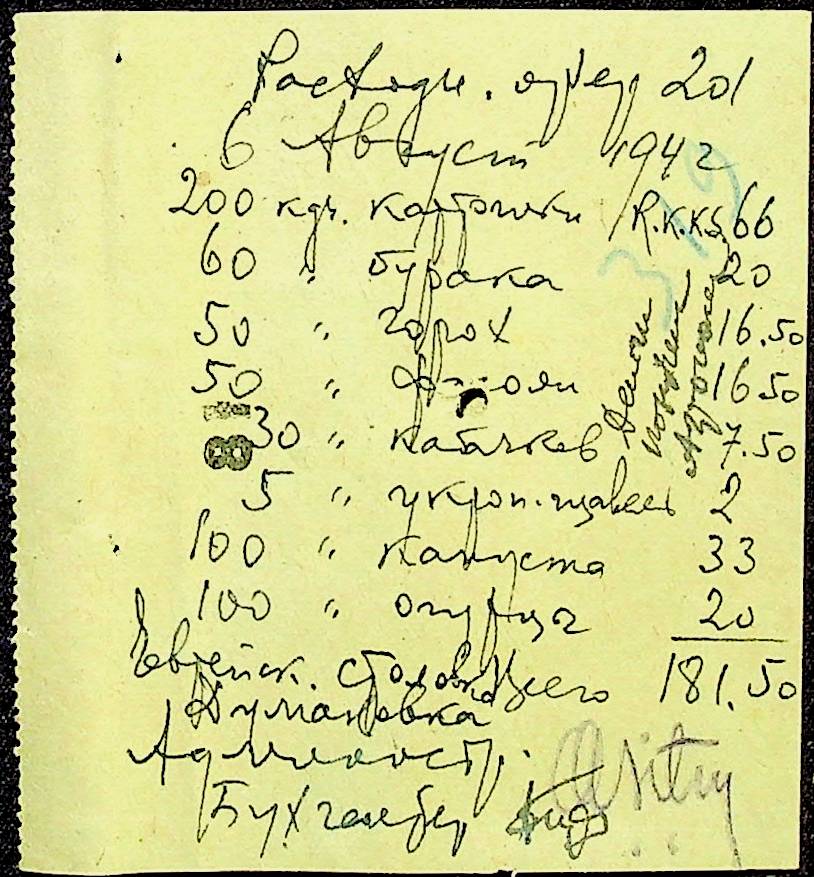 Расходн. ордер 201
6 Август 1942
200 кгр. картошки R.K.KS. 66
60 " бурака 20
50 " горох 16.50
50 " фасоли 16.50
30 " кабачков 7.50
5 " укроп. щавель 2
100 " капуста 33
100 " огурцы 20
Еврейск. столовка Всего 181.50
Думановка
Администр.
Бухгалтер
Деньги
получил
319